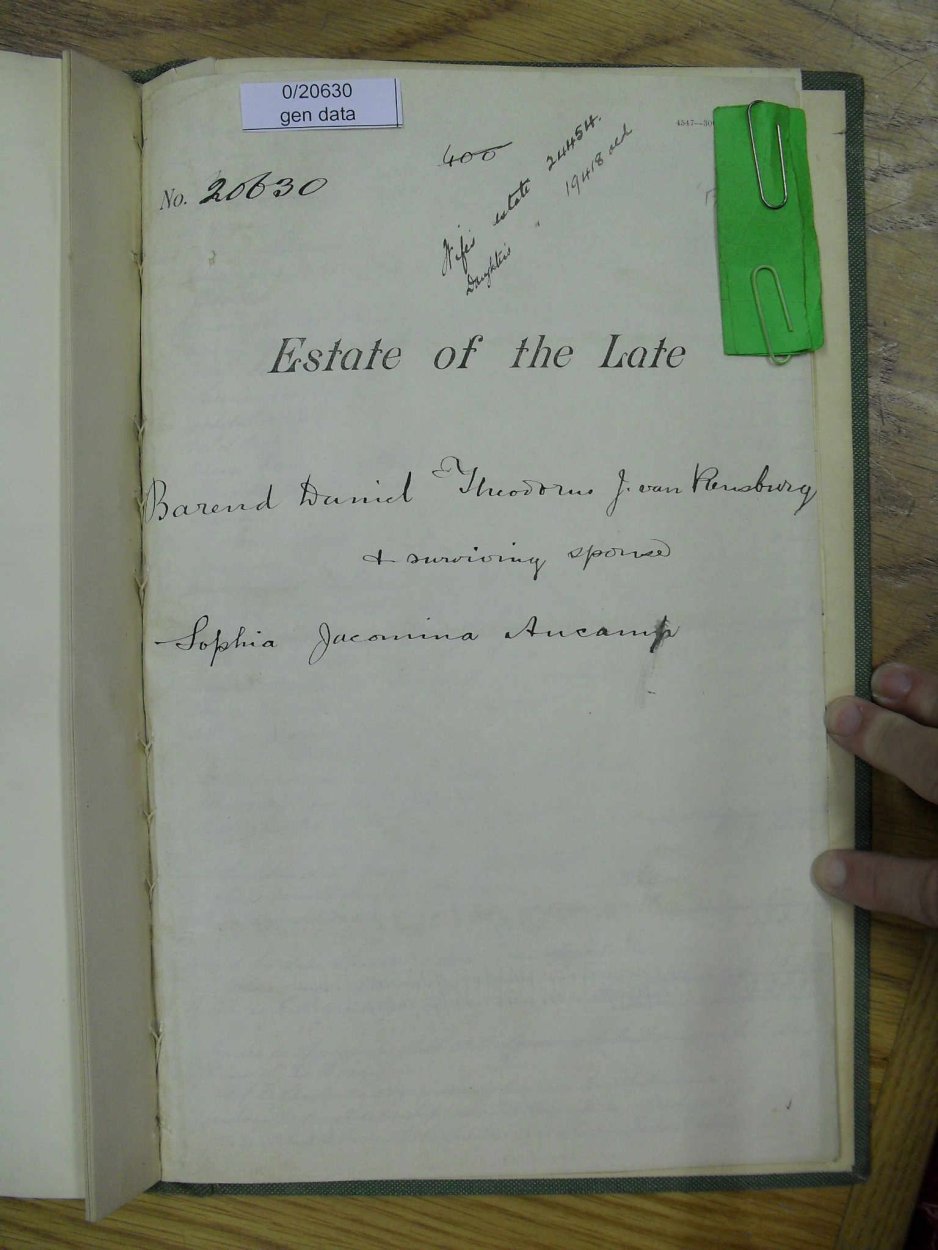 0/20630
gen data
400
4547—30
No. 20630
Wife's estate 24454.
Daughters " 19418 old
Estate of the Late
Barend Daniel Theodorus J. van Rensburg
& surviving spouse
Sophia Jacomina Aucamp